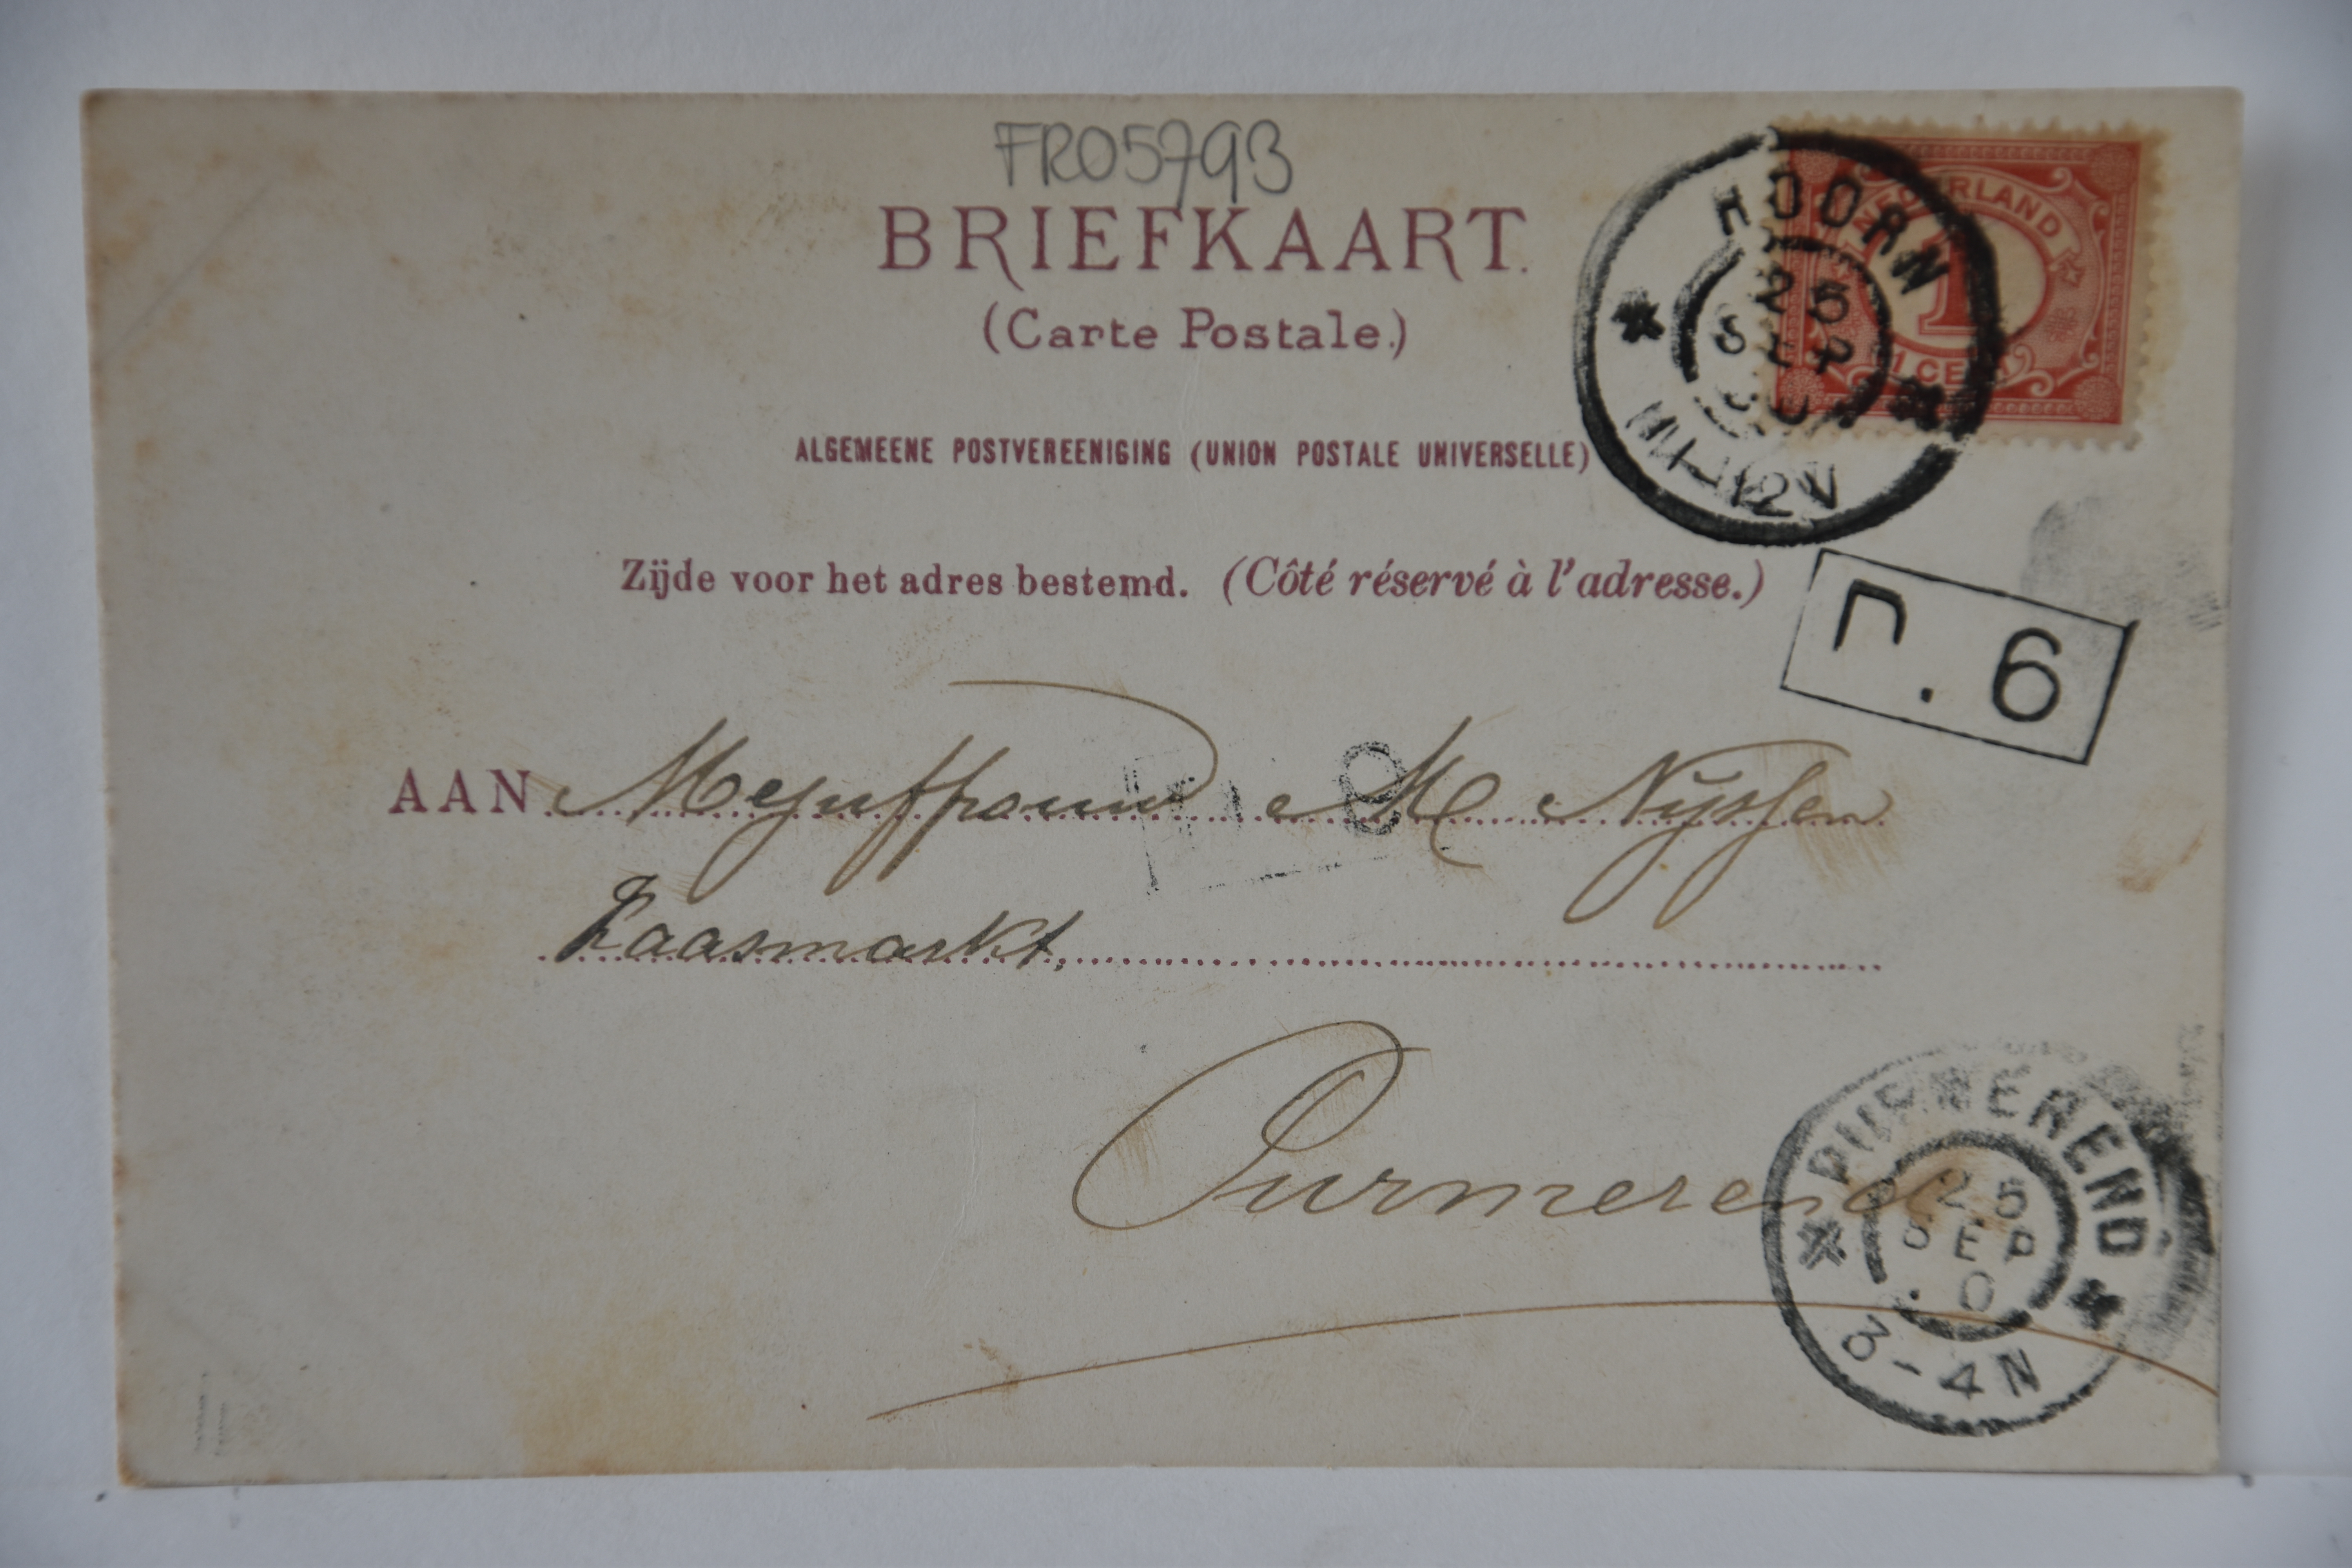 FR05793
BRIEFKAART.
(Carte Postale.)
ALGEMEENE POSTVEREENIGING (UNION POSTALE UNIVERSELLE)
Zijde voor het adres bestemd. (Côté réservé à l'adresse.)
NEDERLAND
1
1 CENT
HOORN
25
SEP
11-12V
n. 6
AAN Mejuffrouw M Nijssen
Kaasmarkt,
Purmerend
PURMEREND
25
SEP
0
3-4N